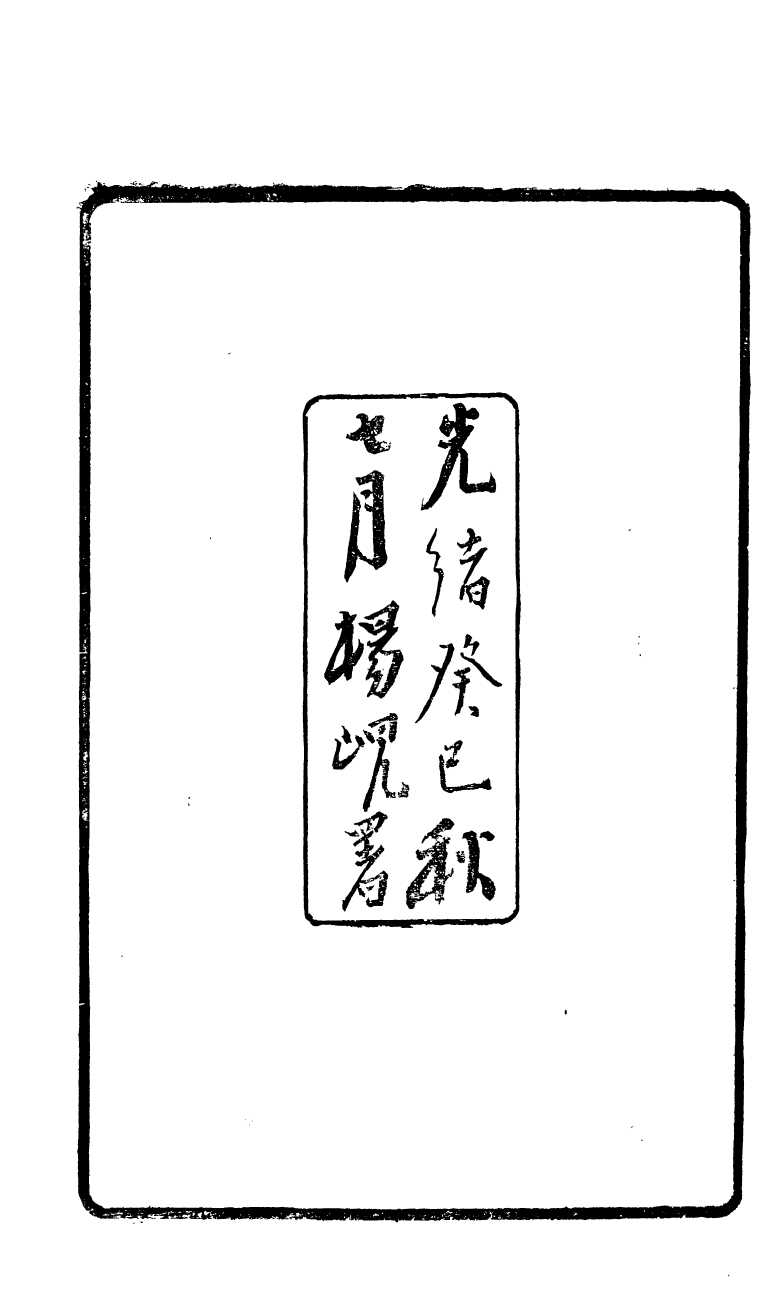 光緒癸巳秋
七月楊峴署